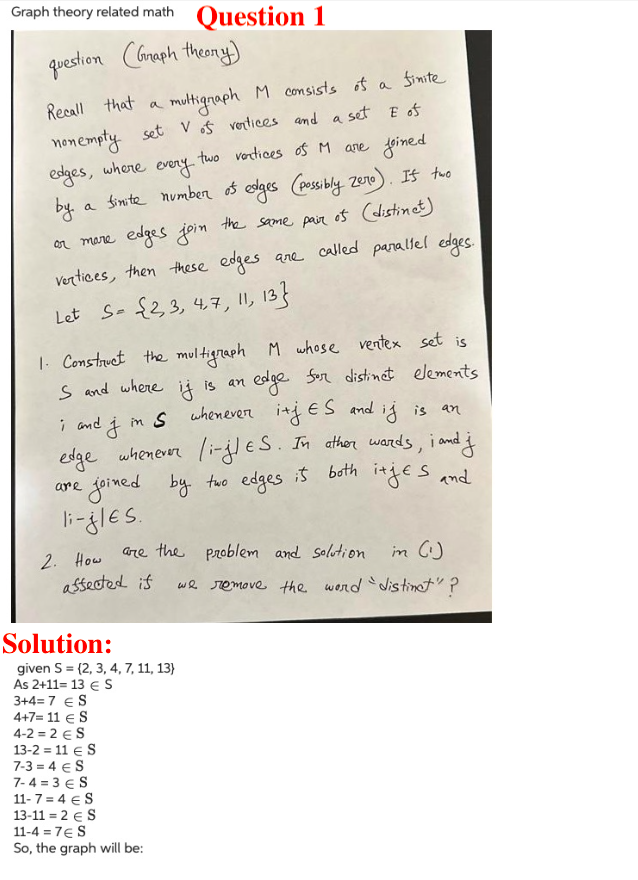 Graph theory related math
Question 1
question (Graph theory)
Recall that a multigraph M consists of a finite
nonempty set V of vertices and a set E of
edges, where every two vertices of M are joined
by a finite number of edges (possibly zero). If two
or more edges join the same pair of (distinct)
vertices, then these edges are called parallel edges.
Let S= {2,3, 4,7, 11, 13}
1. Construct the multigraph M whose vertex set is
S and where ij is an edge for distinct elements
i and j in S whenever i+j ∈ S and ij is an
edge whenever |i-j| ∈ S. In other words, i and j
are joined by two edges if both i+j ∈ S and
|i-j| ∈ S.
2. How are the problem and solution in (1)
affected if we remove the word "distinct"?
Solution:
given S = {2, 3, 4, 7, 11, 13}
As 2+11= 13 ∈ S
3+4= 7 ∈ S
4+7= 11 ∈ S
4-2 = 2 ∈ S
13-2 = 11 ∈ S
7-3 = 4 ∈ S
7- 4 = 3 ∈ S
11- 7 = 4 ∈ S
13-11 = 2 ∈ S
11-4 = 7∈ S
So, the graph will be: